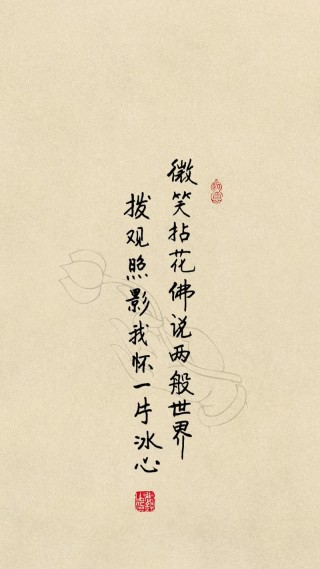 微笑拈花佛说两般世界
拨观照影我怀一片冰心